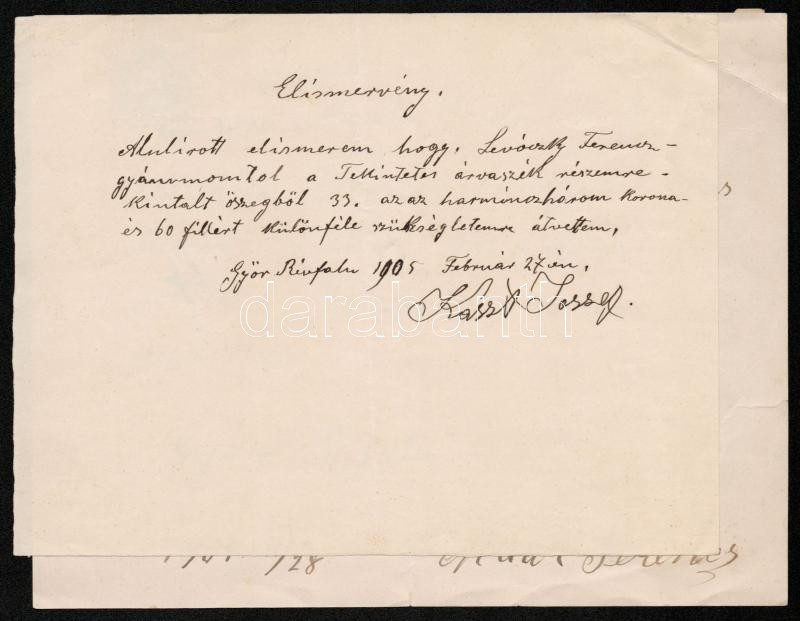 Elismervény.
Alulirott elismerem hogy. Levóczky Ferencz-
gyámomtol a Tekintetes árvaszék részemre-
kiutált öszegböl 33. azaz harminczhárom korona-
és 60 fillért különféle szükségletemre átvettem,
Györ Révfalu 1905 Február 27én.
Jozsef.
darabanth
Ferencz